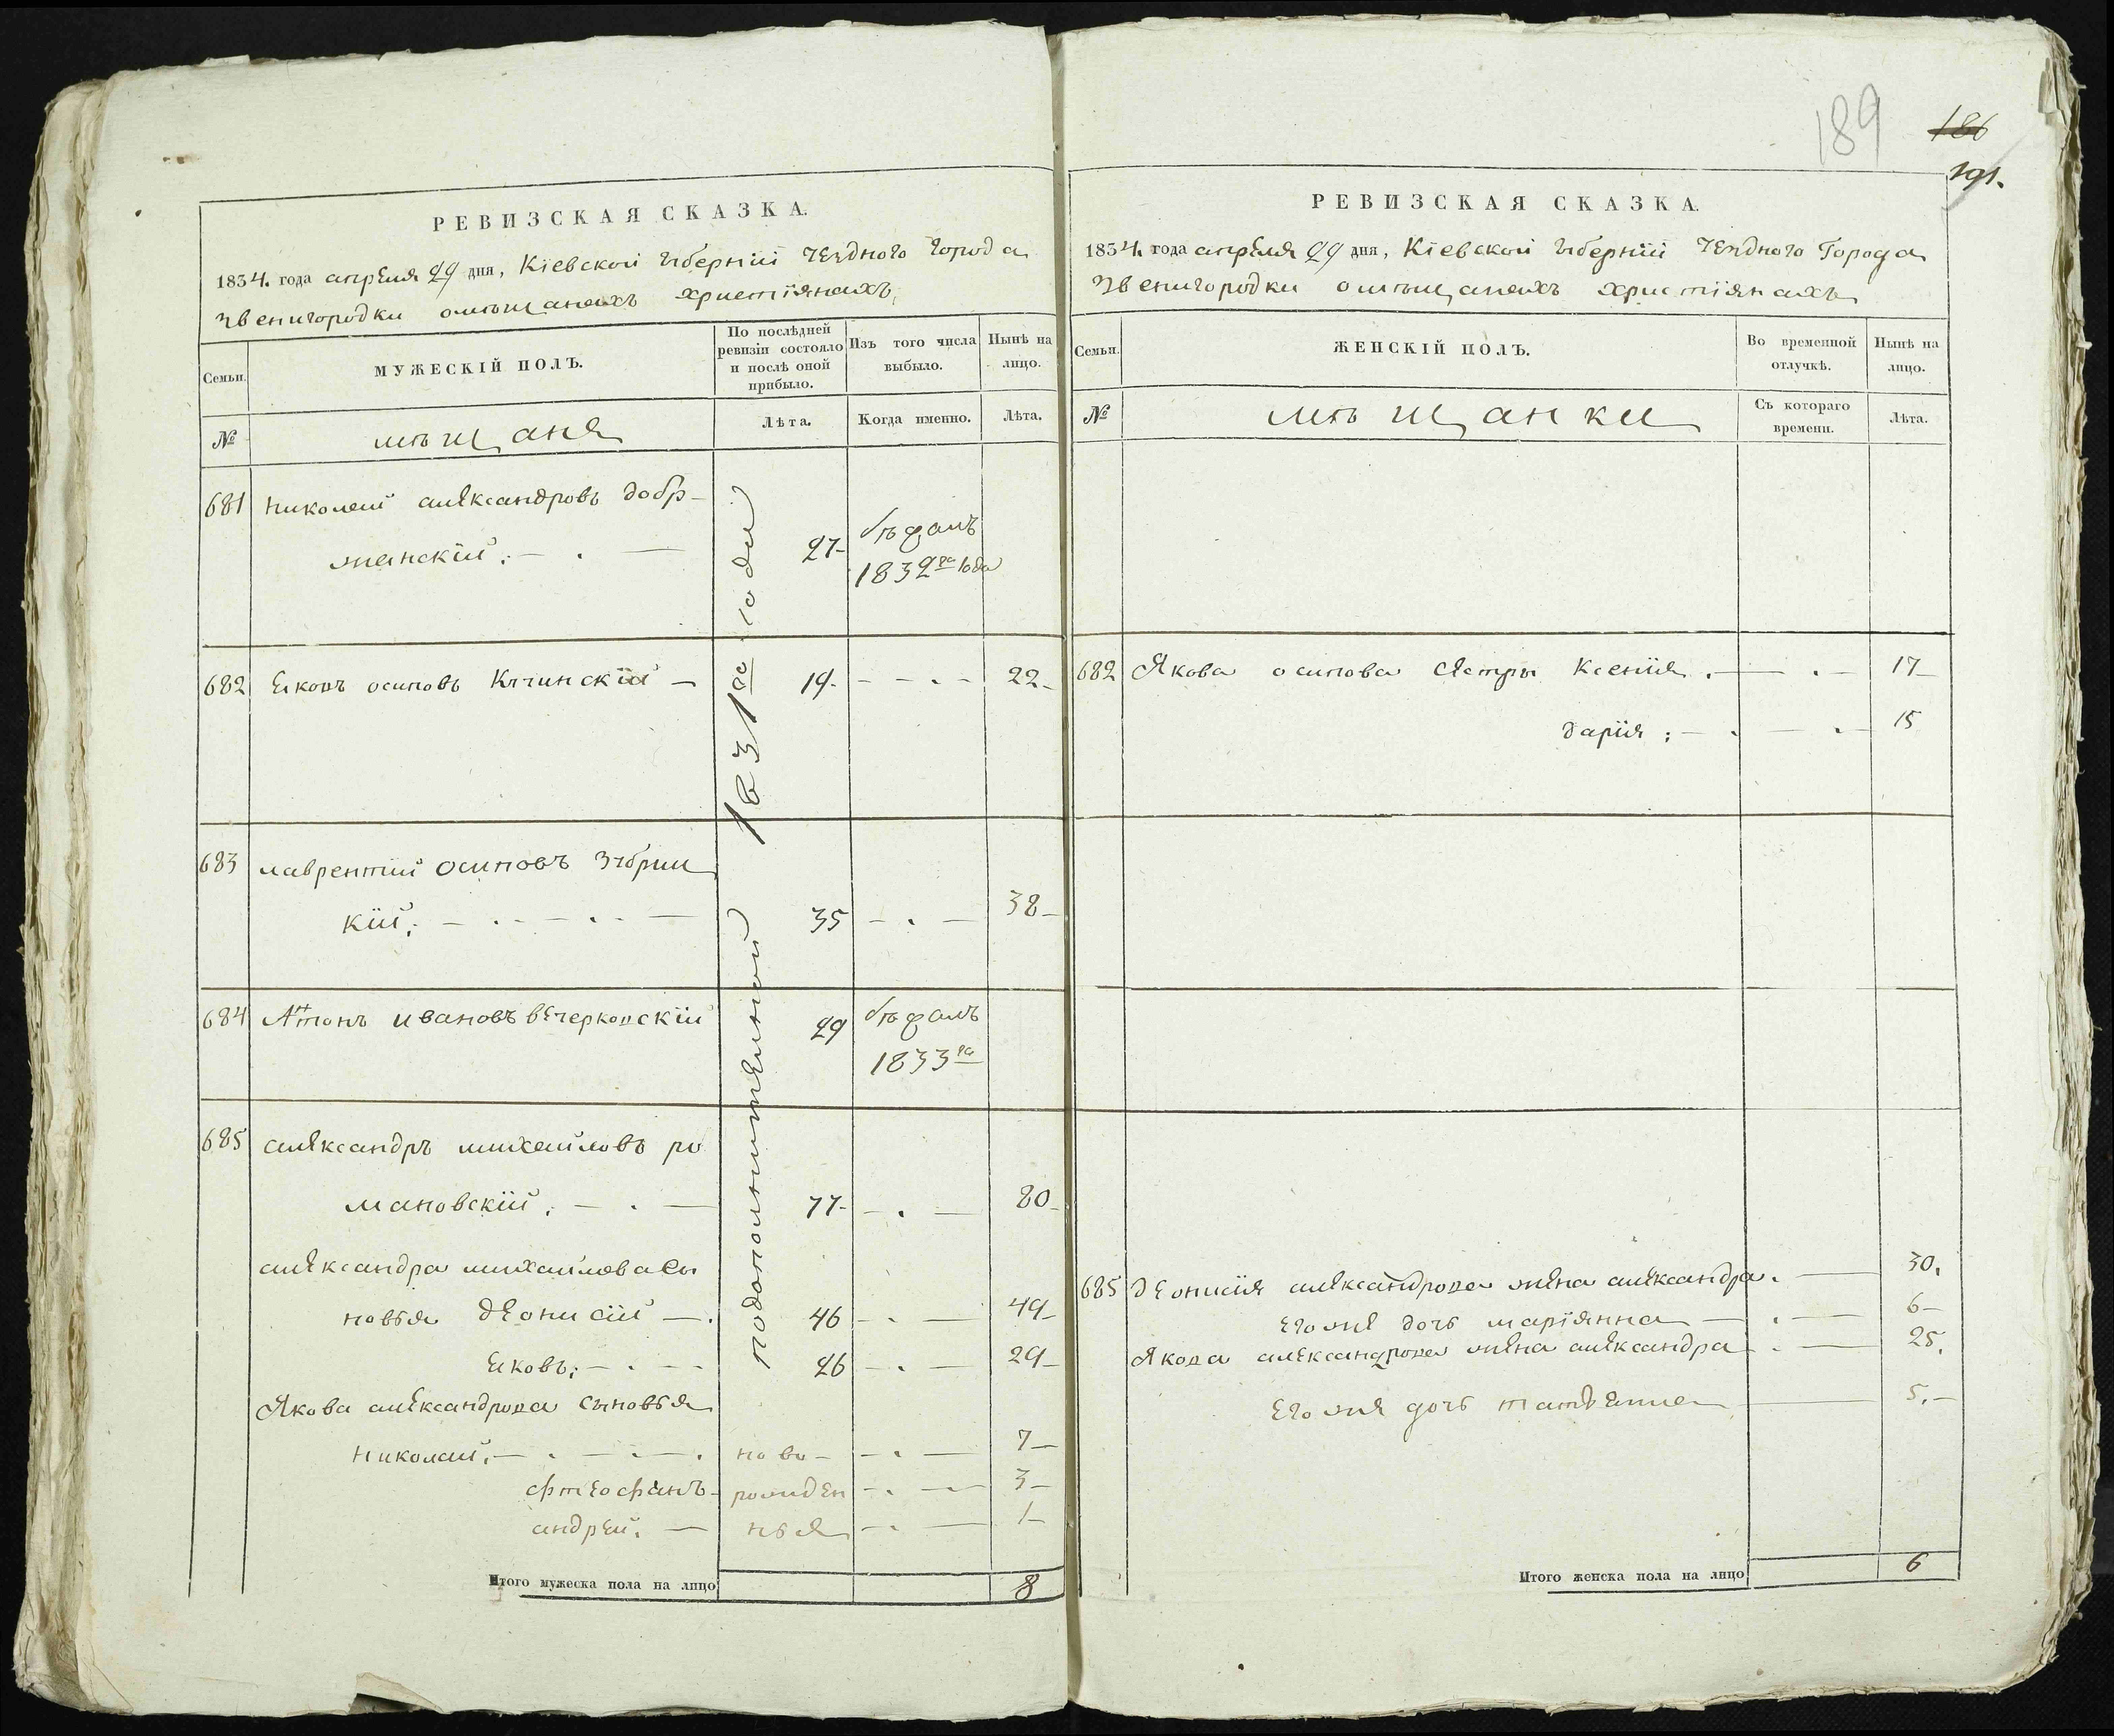 РЕВИЗСКАЯ СКАЗКА.
1834. года апреля 29 дня, Кіевской губерніи уезднаго города
звенигородки омѣщанахъ христіянахъ
Семьи.
МУЖЕСКІЙ ПОЛЪ.
По послѣдней ревизіи состояло и послѣ оной прибыло.
Изъ того числа выбыло.
Нынѣ на лицо.
№
мѣщаня
Лѣта.
Когда именно.
Лѣта.
подополнителной 1831го года
681 николай александровъ добр-
жанскій. 27 бѣжалъ 1832го года
682 Ековъ осиповъ Кучинскій 19 22
683 лаврентій осиповъ Зубриц
кій. 35 38
684 Антонъ ивановъ вечерковскій 29 бѣжалъ 1833го
685 александръ михайловъ ро
мановскій. 77 80
александра михайлова сы
новья деонисій 46 49
Ековъ. 26 29
Якова александрова сыновья
николай. ново- 7
фтеофанъ рожден 3
андрей. нья 1
Итого мужеска пола на лицо 8
189
186
191.
РЕВИЗСКАЯ СКАЗКА.
1834. года апреля 29 дня, Кіевской губерніи уезднаго города
Звенигородки омѣщанахъ христіянахъ
Семьи.
ЖЕНСКІЙ ПОЛЪ.
Во временной отлучкѣ.
Нынѣ на лицо.
№
мѣщанки
Съ котораго времени.
Лѣта.
682 Якова осипова сестры Ксенія. 17
дарія; 15
685 деонисія александрова жена александра. 30.
Его же дочь маріянна 6
Якова александрова жена александра 25.
Его же дочь татіанна 5.
Итого женска пола на лицо 6